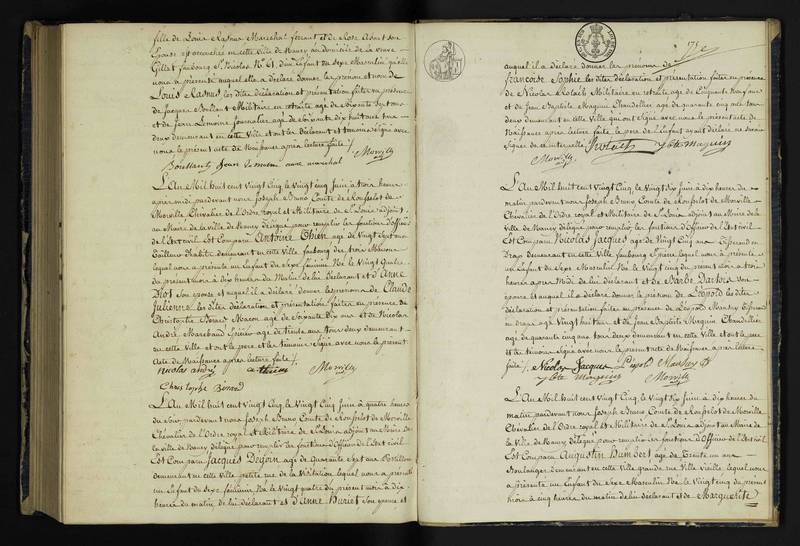 fille de Louis Rasnus Marechal ferrant et de Rose Avast son
Epouse est accouchée en cette Ville de Nancy au domicile de la veuve
Gillet faubourg St Nicolas No 61, d'un Enfant du sexe Masculin qu'elle
nous a présenté auquel elle a déclaré donner les prénoms et nom de
Louis Rasnus les dites déclaration et présentation faites en présence
de Jacques Militaire en retraite agé de Soixante sept ans
et de Jean Lemoine Journalier agé de Soixante dix huit ans tous
deux demeurant en cette Ville et ont les déclarant et témoins signé avec
nous le présent acte de Naissance après lecture faite /.
Morville
L'An Mil huit cent Vingt Cinq le Vingt cinq Juin à trois heures
après midi pardevant nous Joseph Bruno Comte de Rousselot de
Morville Chevalier de l'Ordre royal et Militaire de St Louis adjoint
au Maire de la ville de Nancy délégué pour remplir les fonctions d'Officier
de l'Etat civil Est Comparu Antoine Thien agé de Vingt sept ans
Tailleur d'habits demeurant en cette Ville faubourg des trois Maisons
lequel nous a présenté un Enfant du Sexe féminin Né le Vingt quatre
du présent mois à dix heures du Matin de lui déclarant et d'Anne
Diot son épouse et auquel il a déclaré donner les prénoms de Claude
Julienne les dites déclaration et présentation faites en présence de
Christophe Benard Macon agé de Soixante dix ans et de Nicolas
André Marchand Epicier agé de trente ans tous deux demeurant
en cette Ville et ont le pere et les témoins signé avec nous le présent
Acte de Naissance après lecture faite /.
Nicolas André a thien Morville
Christophe Benard
L'An Mil huit cent Vingt Cinq le Vingt Cinq Juin à quatre heures
du Soir pardevant nous Joseph Bruno Comte de Rousselot de Morville
Chevalier de l'Ordre royal et Militaire de St Louis adjoint au Maire de
la ville de Nancy délégué pour remplir les fonctions d'Officier de l'Etat civil
Est Comparu Jacques Dejoin agé de Quarante sept ans Postillon
demeurant en cette Ville petite rue de la Visitation lequel nous a présenté
un Enfant du sexe féminin Né le Vingt quatre du présent mois à dix
heures du matin de lui déclarant et d'Anne Huriet son épouse et
175e
auquel il a déclaré donner les prénoms de
Françoise Sophie les dites déclaration et présentation faites en présence
de Nicolas Militaire en retraite agé de Cinquante huit ans
et de Jean Baptiste Maguin Chandellier agé de quarante cinq ans tous
deux demeurant en cette Ville qui ont signé avec nous le présent acte de
Naissance après lecture faite le pere de l'Enfant ayant déclaré ne savoir
signer de ce interpellé
jbte maguin
Morville
L'An Mil huit cent Vingt Cinq, le Vingt six Juin à dix heures du
matin pardevant nous Joseph Bruno Comte de Rousselot de Morville
Chevalier de l'Ordre royal et Militaire de St Louis adjoint au Maire de la
Ville de Nancy délégué pour remplir les fonctions d'Officier de l'Etat civil
Est Comparu Nicolas Jacques agé de Vingt Cinq ans
Drap demeurant en cette Ville faubourg St pierre lequel nous a présenté
un Enfant du Sexe Masculin Né le Vingt cinq du présent mois à trois
heures après Midi de lui déclarant et de Barbe Dartois son
épouse et auquel il a déclaré donner le prénom de Léopold les dites
déclaration et présentation faites en présence de Léopold Manhey
en drap agé Vingt huit ans et de Jean Baptiste Maguin Chandellier
agé de quarante cinq ans tous deux demeurant en cette Ville et ont le pere
et les témoins signé avec nous le présent acte de Naissance après lecture
faite /. Nicolas Jacques Léopold Manhey
jbte Maguin Morville
L'An Mil huit cent Vingt Cinq le Vingt six Juin à dix heures du
matin pardevant nous Joseph Bruno Comte de Rousselot de Morville
Chevalier de l'Ordre royal et Militaire de St Louis adjoint au Maire de
la Ville de Nancy, délégué pour remplir les fonctions d'Officier de l'Etat civil
Est Comparu Augustin Humbert agé de Trente un ans
Boulanger demeurant en cette Ville grande rue Ville Vieille lequel nous
a présenté un Enfant du Sexe Masculin Né le Vingt cinq du présent
mois à cinq heures du matin de lui déclarant et de Marguerite